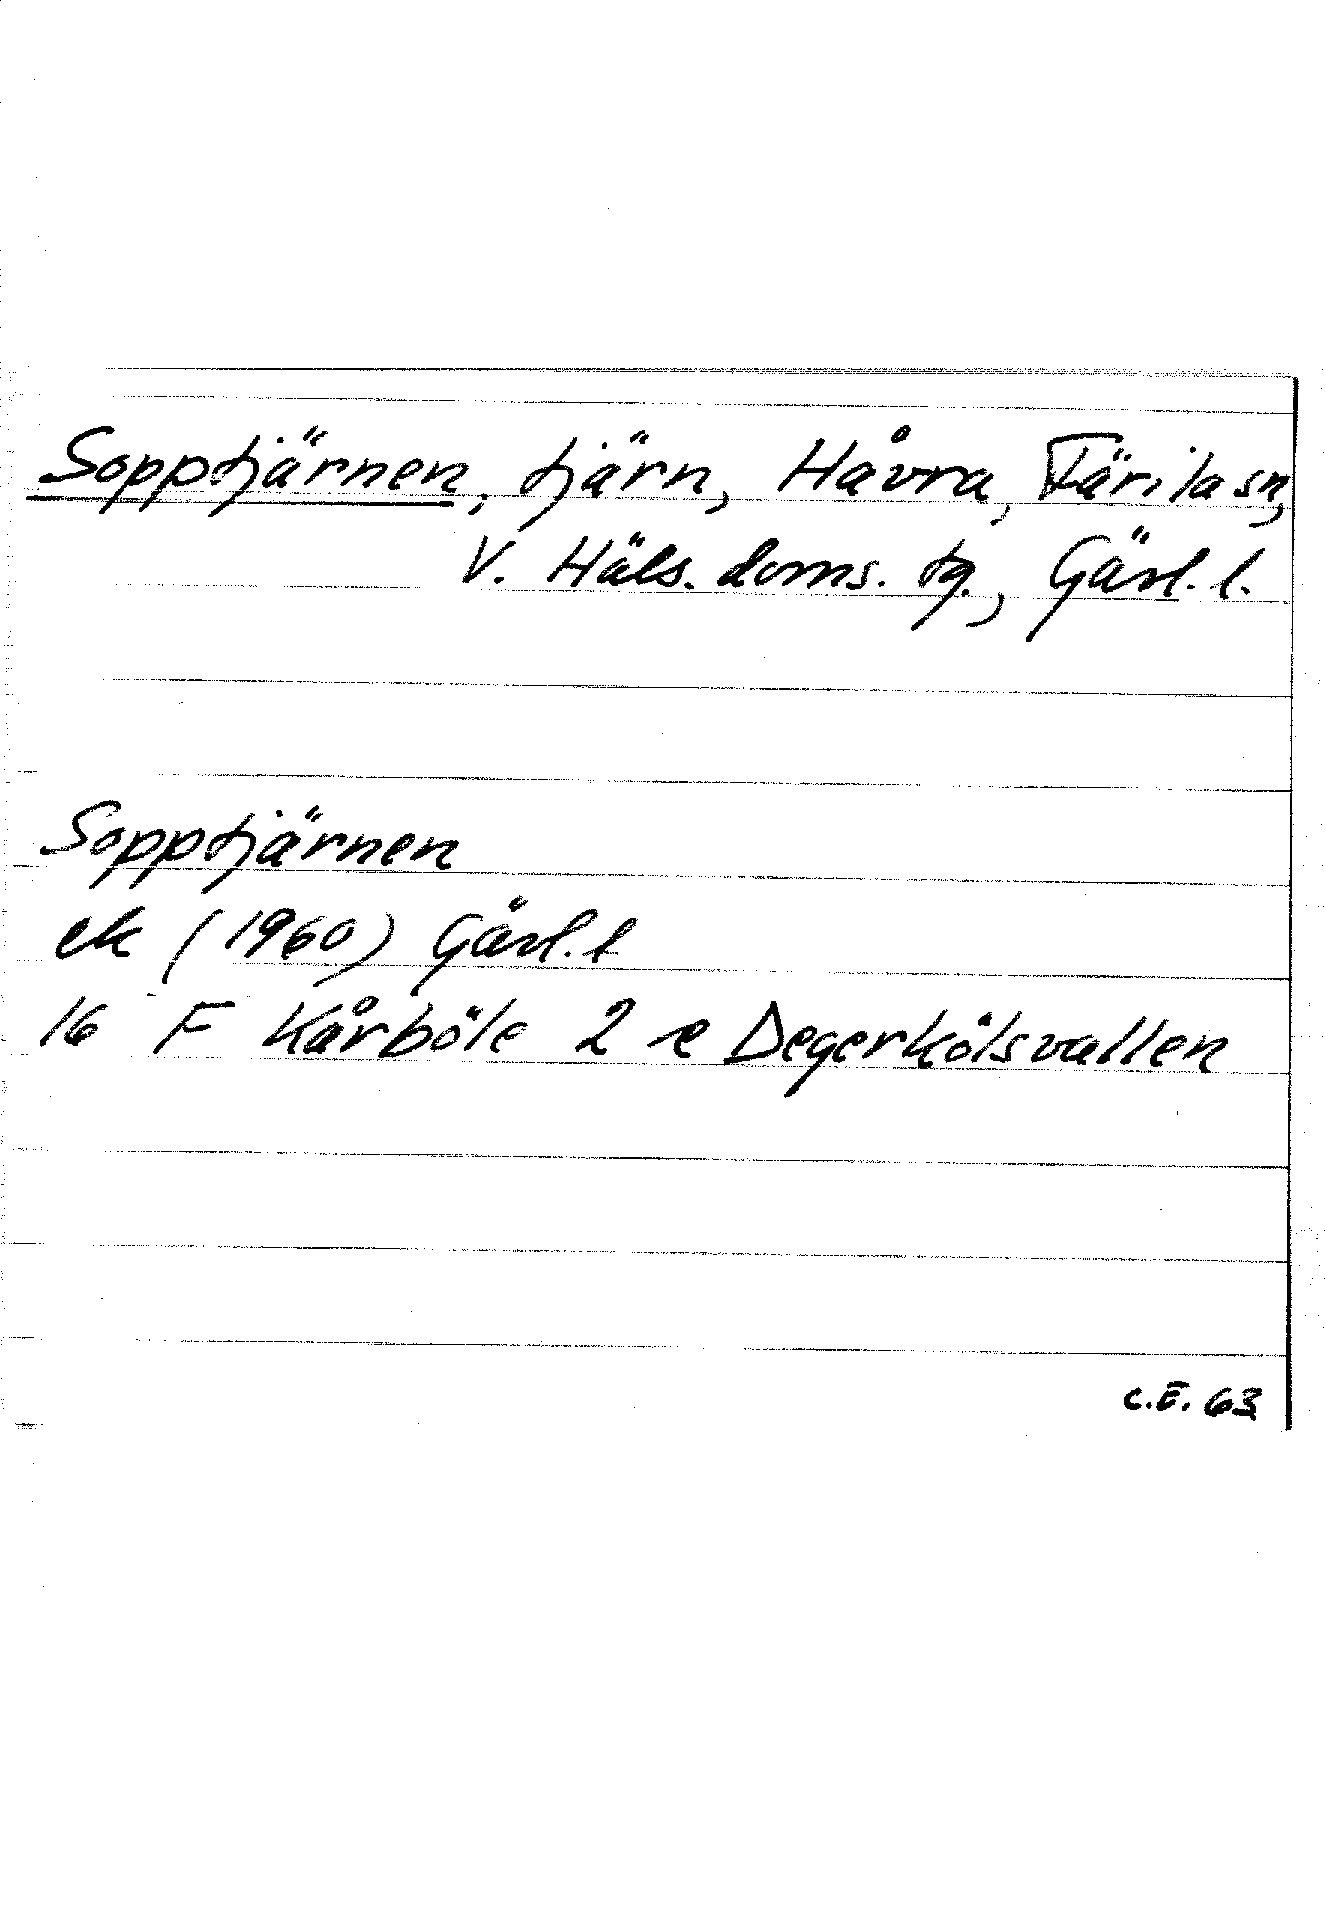 Sopptjärnen, tjärn, Håvra, Färila sn,
V. Häls. doms. tg., Gävl. l.
Sopptjärnen
ek (1960) Gävl. l
16 F Kårböle 2 e Degerkölsvallen
C.E. 63